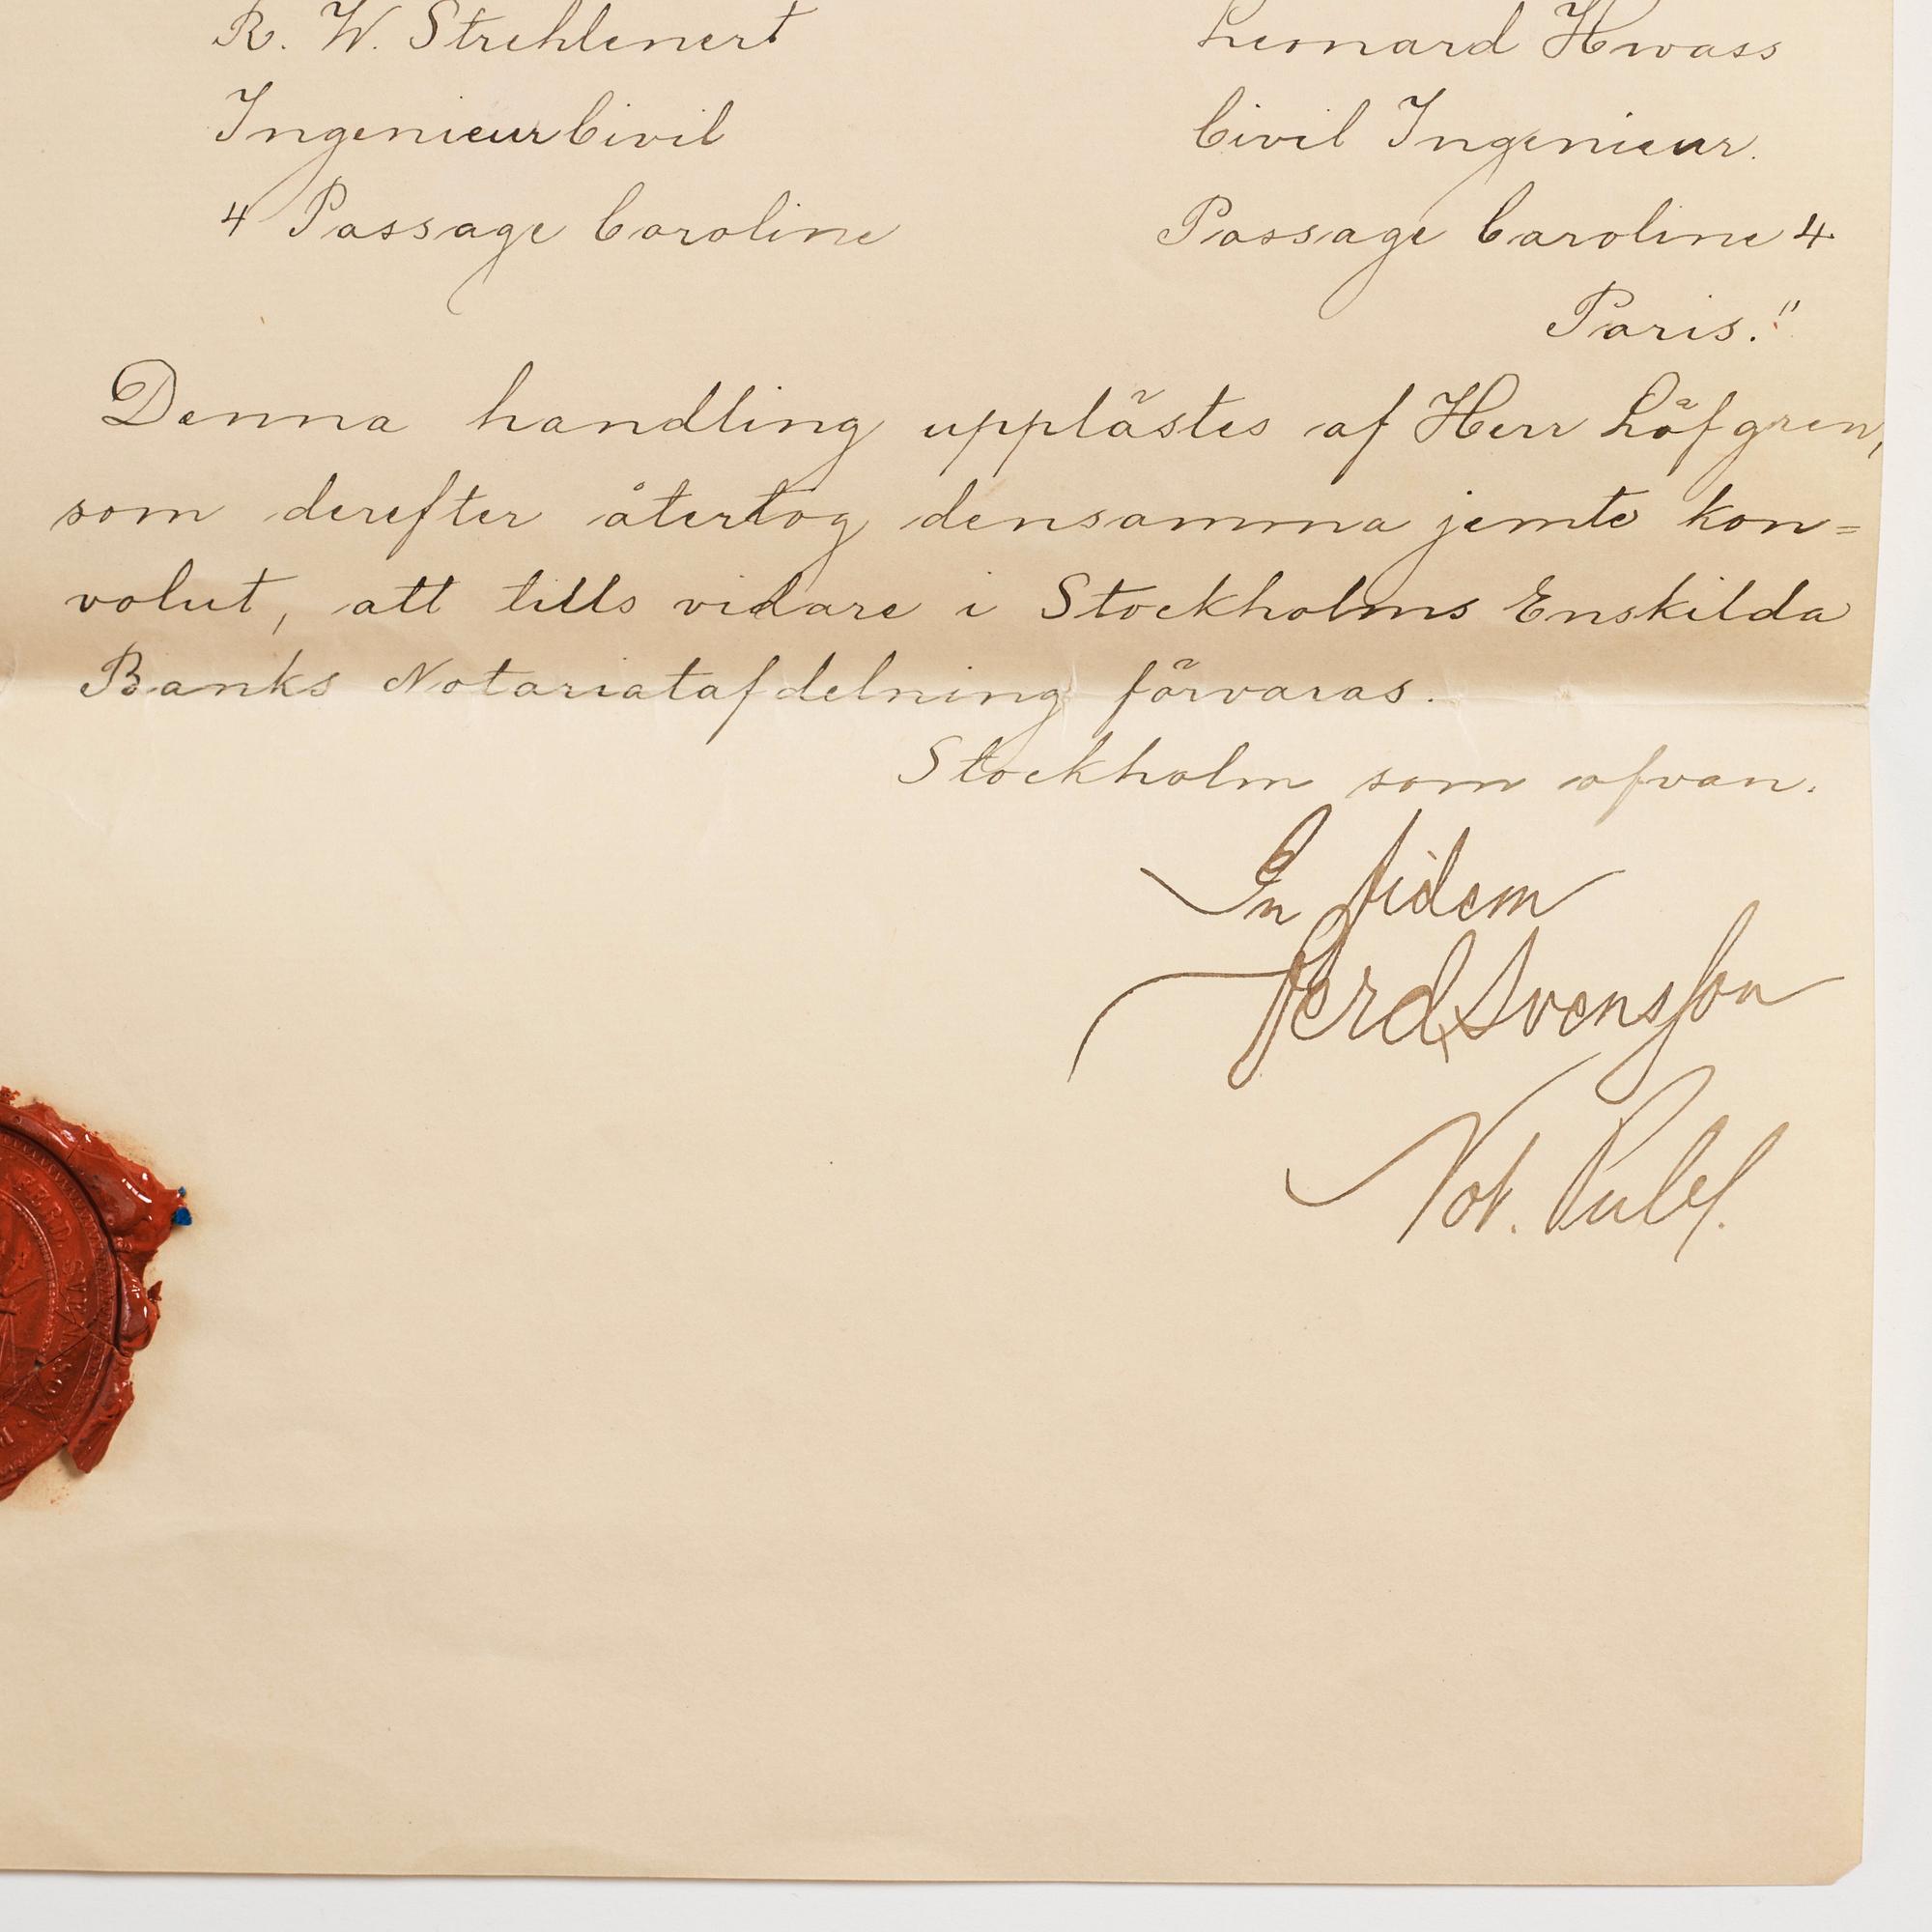 R. W. Strehlenert Leonard Hwass
Ingenieur Civil Civil Ingenieur.
4 Passage Caroline Passage Caroline 4
Paris."
Denna handling upplästes af Herr Löfgren,
som derefter återtog densamma jemte kon=
volut, att tills vidare i Stockholms Enskilda
Banks Notariatafdelning förvaras.
Stockholm som ofvan.
In fidem
Ferd Svensson
Not. Publ.
FERD. SVENSSON